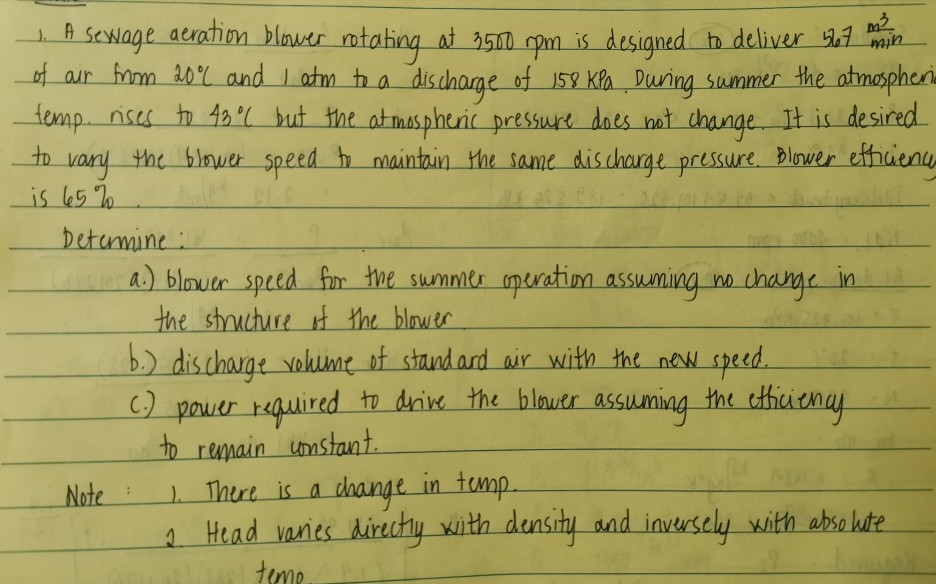 1. A sewage aeration blower rotating at 3500 rpm is designed to deliver 567 m³/min
of air from 20°C and 1 atm to a discharge of 158 KPa. During summer the atmospheri
temp. rises to 43°C but the atmospheric pressure does not change. It is desired
to vary the blower speed to maintain the same discharge pressure. Blower efficiency
is 65%.
Determine:
a.) blower speed for the summer operation assuming no change in
the structure of the blower
b.) discharge volume of standard air with the new speed.
c.) power required to drive the blower assuming the efficiency
to remain constant.
Note : 1. There is a change in temp.
2. Head varies directly with density and inversely with absolute
temp.